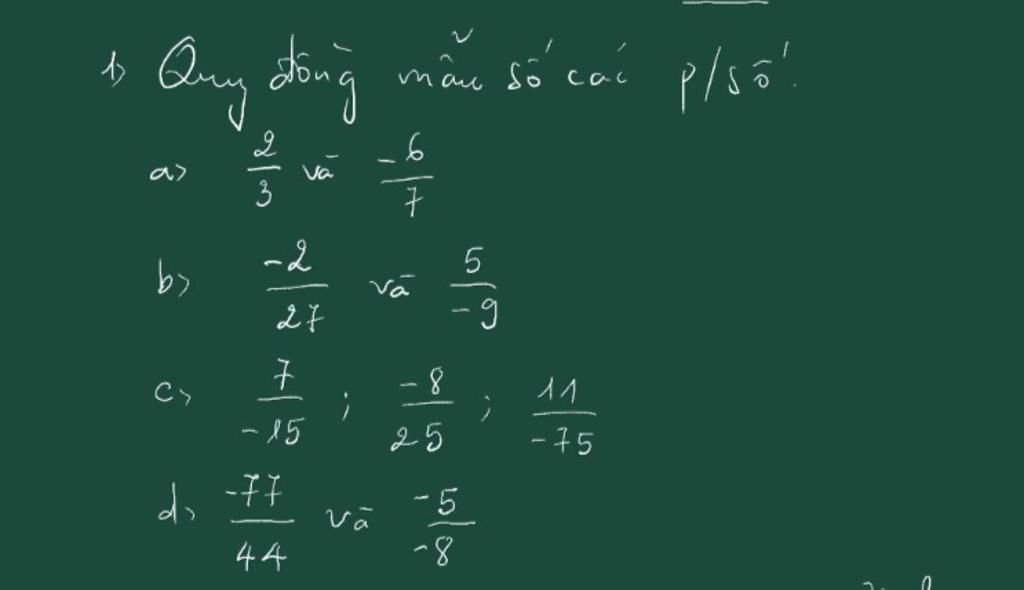 1) Quy đồng mẫu số các p/số.
a) 2/3 và -6/7
b) -2/27 và 5/-9
c) 7/-15 ; -8/25 ; 11/-75
d) -77/44 và -5/-8